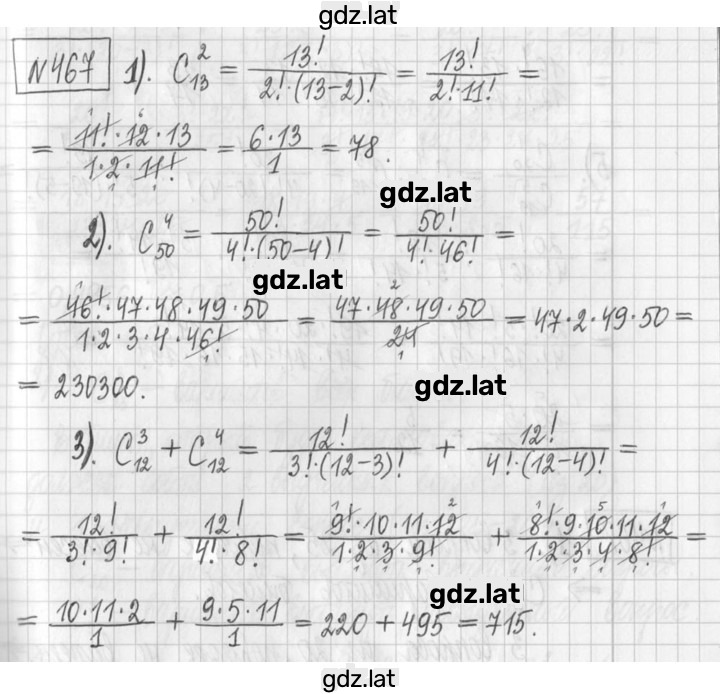 gdz.lat
№467 1). C₁₃² = 13!/(2!·(13−2)!) = 13!/(2!·11!) =
= (11!·12·13)/(1·2·11!) = (6·13)/1 = 78.
gdz.lat
2). C₅₀⁴ = 50!/(4!·(50−4)!) = 50!/(4!·46!) =
gdz.lat
= (46!·47·48·49·50)/(1·2·3·4·46!) = (47·48·49·50)/24 = 47·2·49·50 =
= 230300.
gdz.lat
3). C₁₂³ + C₁₂⁴ = 12!/(3!·(12−3)!) + 12!/(4!·(12−4)!) =
= 12!/(3!·9!) + 12!/(4!·8!) = (9!·10·11·12)/(1·2·3·9!) + (8!·9·10·11·12)/(1·2·3·4·8!) =
gdz.lat
= (10·11·2)/1 + (9·5·11)/1 = 220 + 495 = 715.
gdz.lat